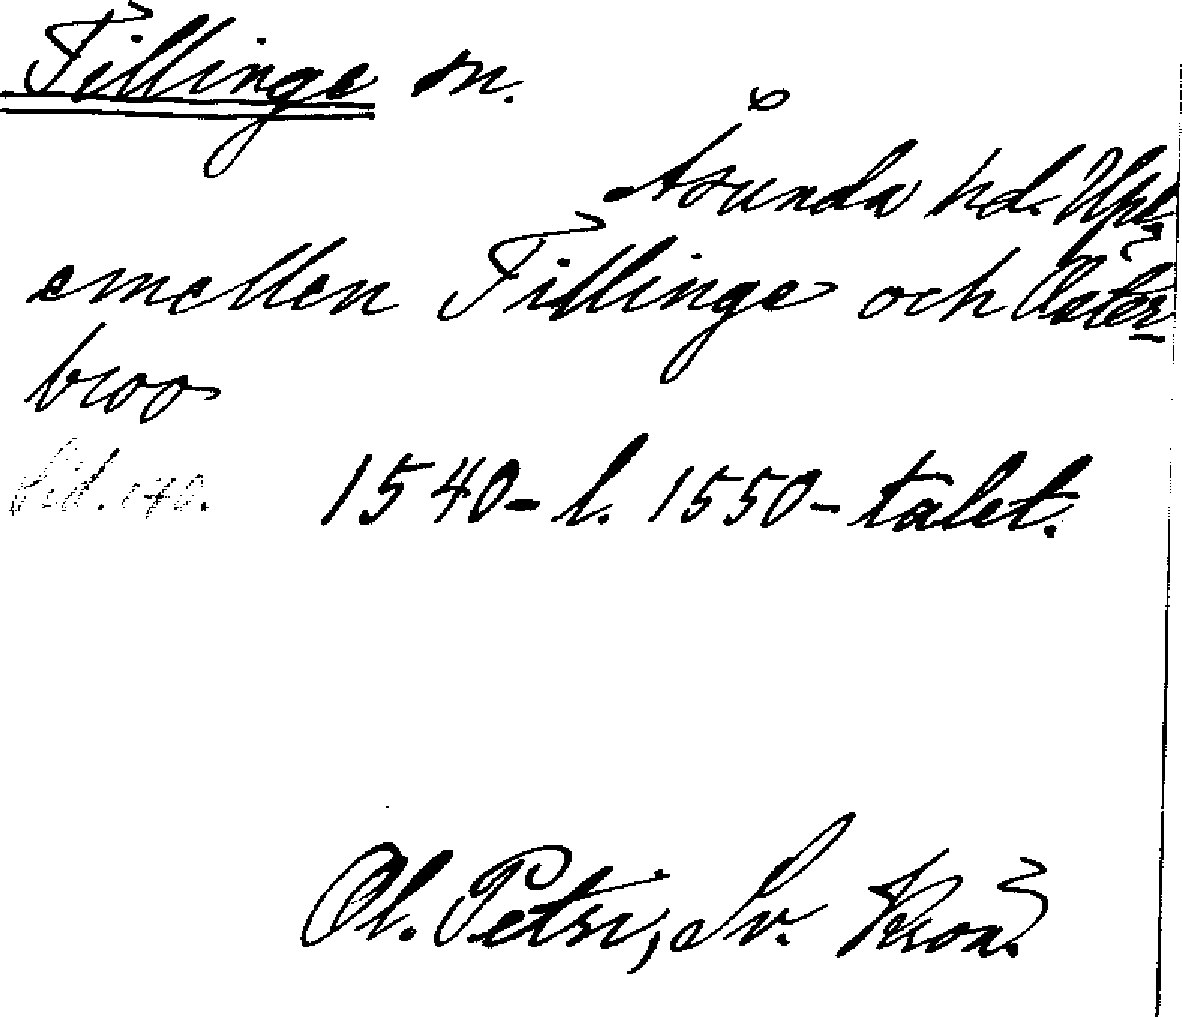 Tillinge sn.
Åsunda hd. Upl.
emellen Tillinge och Öster-
broo
Sid. 140. 1540- l. 1550-talet.
Ol. Petri, Sv. Krön.